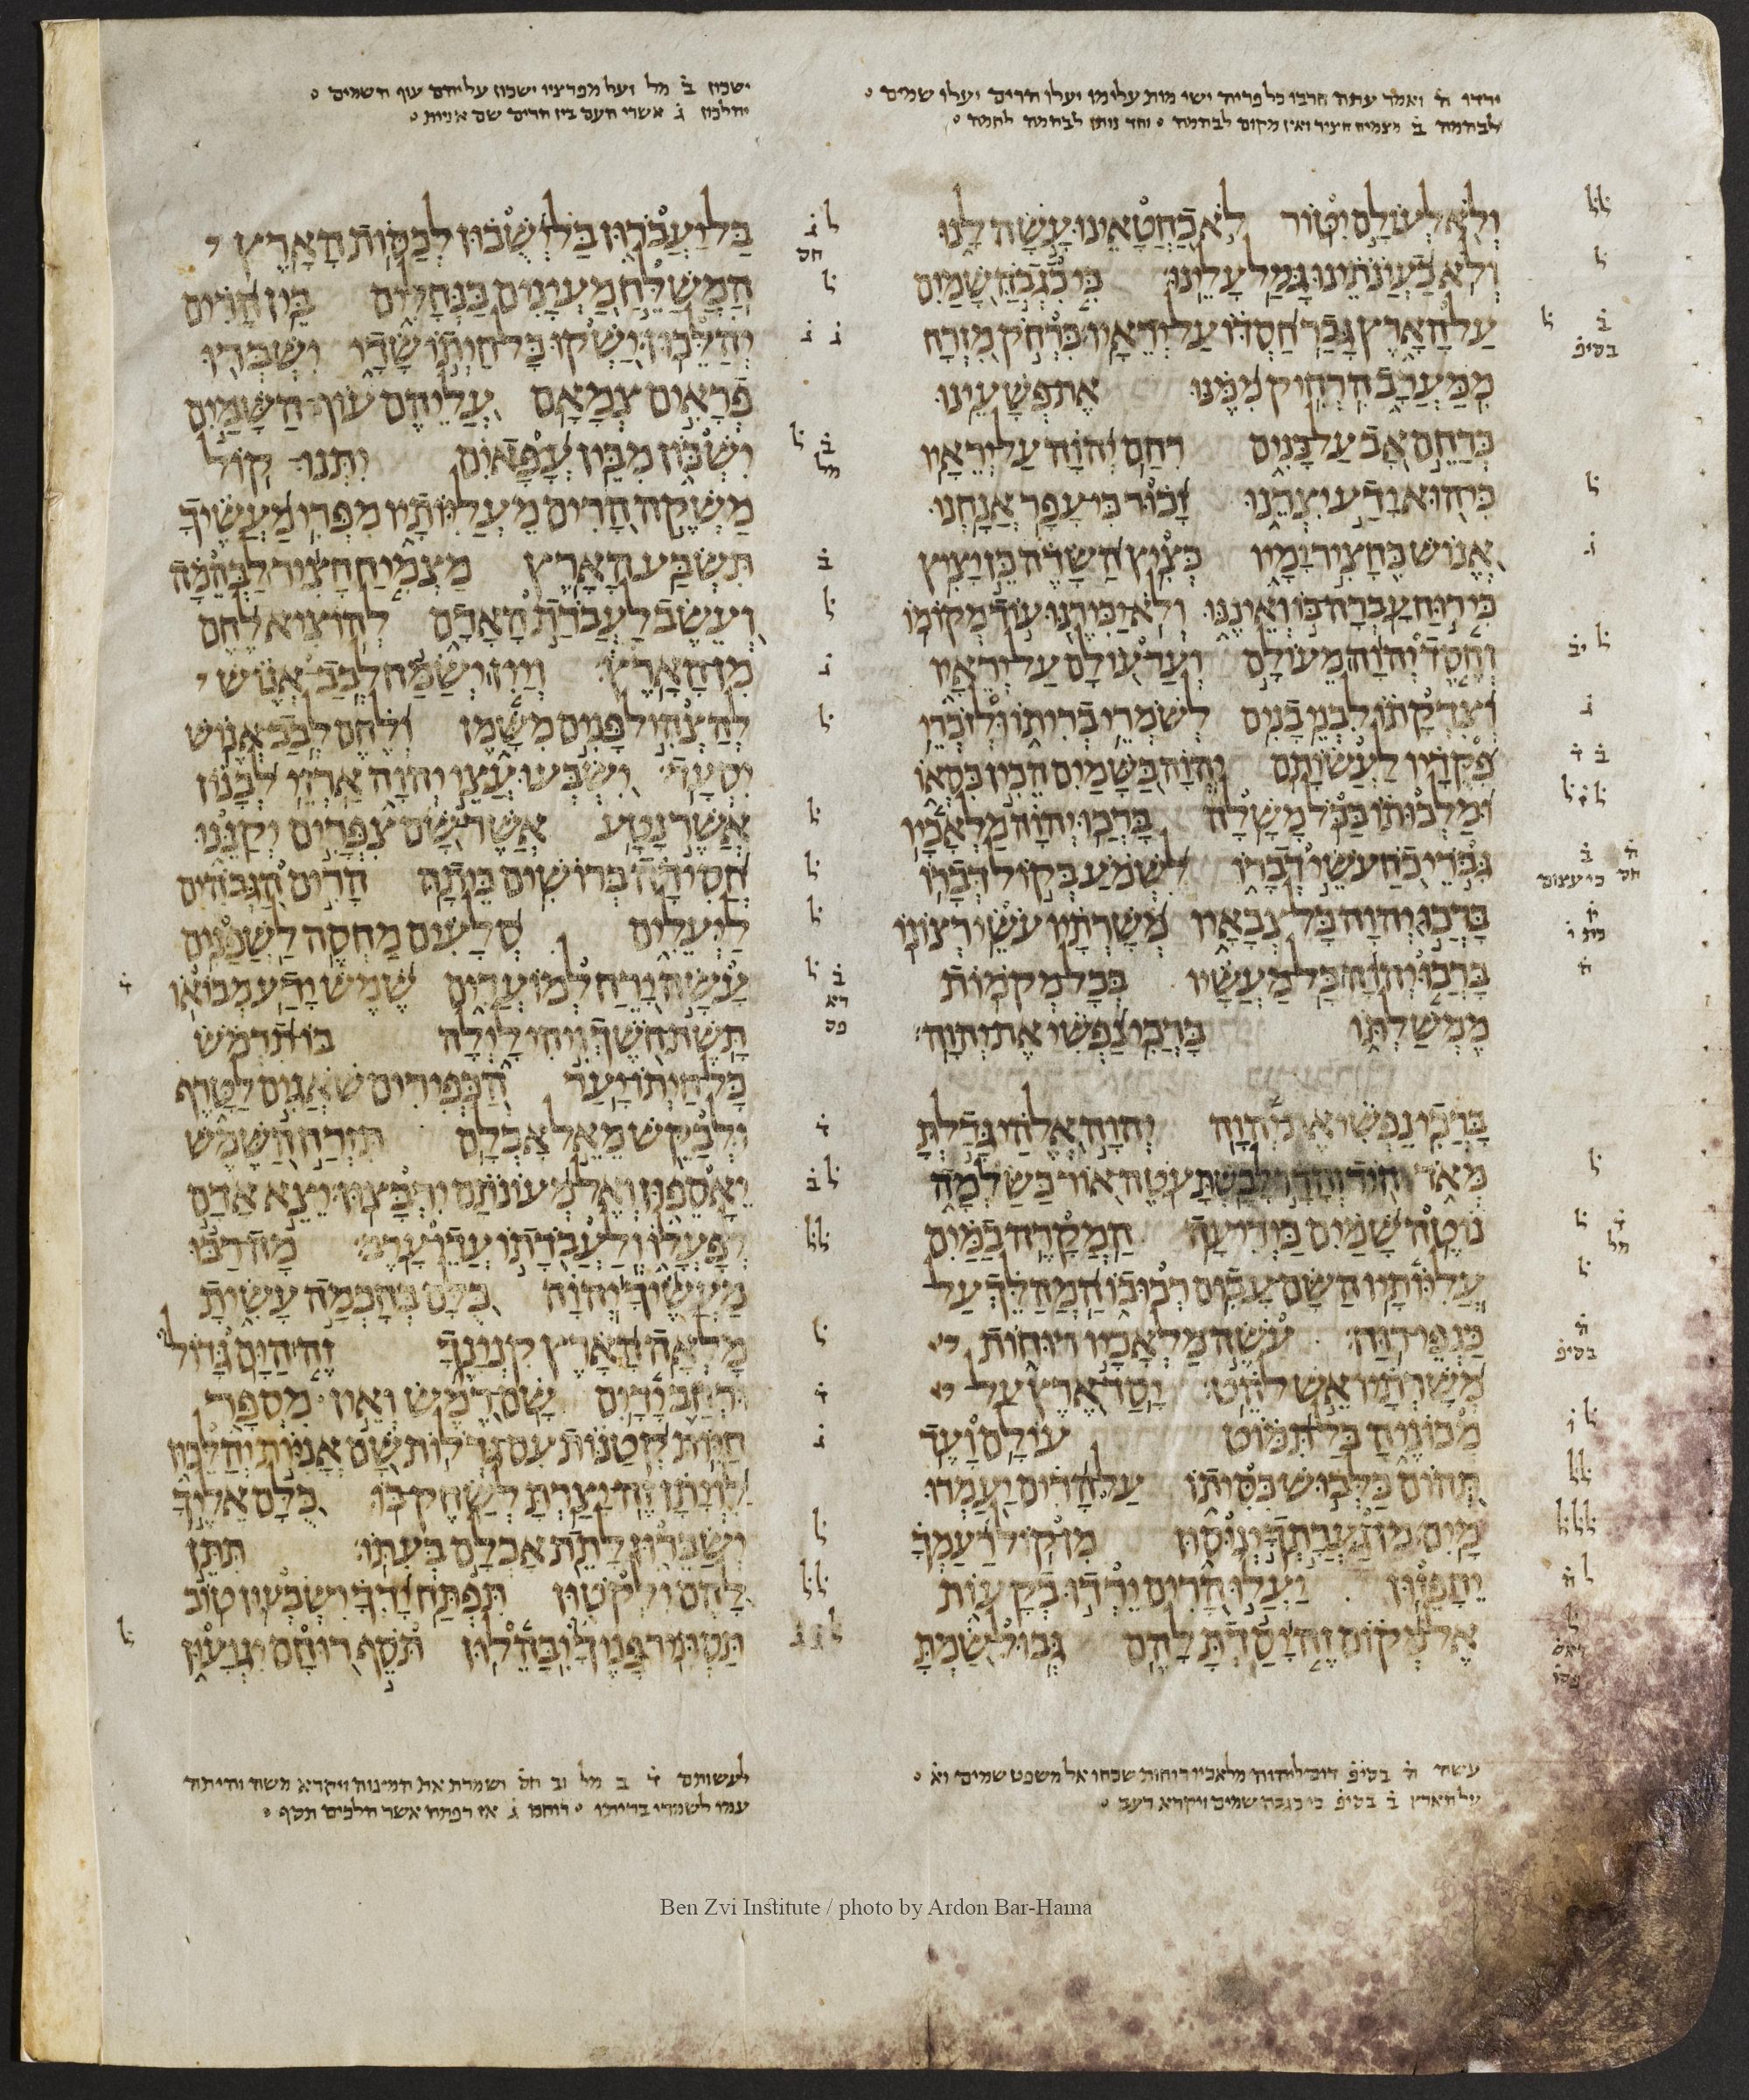 ירדו ה ואמר עתה חרבו כל פריה ישי מות עלימו יעלו הרים יעלו שמים
לבהמה ב מצמיח חציר ואין מקום לבהמה וחד נותן לבהמה לחמה
ולא לעולם יטור לא כחטאינו עשה לנו
ולא כעונתינו גמל עלינו כי כגבה שמים
על הארץ גבר חסדו על יראיו כרחק מזרח
ממערב הרחיק ממנו את פשעינו
כרחם אב על בנים רחם יהוה על יראיו
כי הוא ידע יצרנו זכור כי עפר אנחנו
אנוש כחציר ימיו כציץ השדה כן יציץ
כי רוח עברה בו ואיננו ולא יכירנו עוד מקומו
וחסד יהוה מעולם ועד עולם על יראיו
וצדקתו לבני בנים לשמרי בריתו ולזכרי
פקדיו לעשותם יהוה בשמים הכין כסאו
ומלכותו בכל משלה ברכו יהוה מלאכיו
גברי כח עשי דברו לשמע בקול דברו
ברכו יהוה כל צבאיו משרתיו עשי רצונו
ברכו יהוה כל מעשיו בכל מקמות
ממשלתו ברכי נפשי את יהוה
ברכי נפשי את יהוה יהוה אלהי גדלת
מאד הוד והדר לבשת עטה אור כשלמה
נוטה שמים כיריעה המקרה במים
עליותיו השם עבים רכובו המהלך על
כנפי רוח עשה מלאכיו רוחות
משרתיו אש להט יסד ארץ על
מכוניה בל תמוט עולם ועד
תהום כלבוש כסיתו על הרים יעמדו
מים מן גערתך ינוסון מן קול רעמך
יחפזון יעלו הרים ירדו בקעות
אל מקום זה יסדת להם גבול שמת
עשה ה בסיפ דוב ליהוה מלאכיו רוחות שבחו אל משפט שמים וא
על הארץ ב בסיפ כי כגבה שמים ויקרא רעב
ישכון ב מל ועל מפרציו ישכון עליהם עוף השמים
יהלכון ג אשרי העם בין הרים שם אניות
בל יעברון בל ישבון לכסות הארץ
המשלח מעינים בנחלים בין הרים
יהלכון ישקו כל חיתו שדי ישברו
פראים צמאם עליהם עוף השמים
ישכון מבין עפאים יתנו קול
משקה הרים מעליותיו מפרי מעשיך
תשבע הארץ מצמיח חציר לבהמה
ועשב לעבדת האדם להוציא לחם
מן הארץ ויין ישמח לבב אנוש
להצהיל פנים משמן ולחם לבב אנוש
יסעד ישבעו עצי יהוה ארזי לבנון
אשר נטע אשר שם צפרים יקננו
חסידה ברושים ביתה הרים הגבהים
ליעלים סלעים מחסה לשפנים
עשה ירח למועדים שמש ידע מבואו
תשת חשך ויהי לילה בו תרמש
כל חיתו יער הכפירים שאגים לטרף
ולבקש מאל אכלם תזרח השמש
יאספון ואל מעונתם ירבצון יצא אדם
לפעלו ולעבדתו עדי ערב מה רבו
מעשיך יהוה כלם בחכמה עשית
מלאה הארץ קנינך זה הים גדול
ורחב ידים שם רמש ואין מספר
חיות קטנות עם גדלות שם אניות יהלכון
לויתן זה יצרת לשחק בו כלם אליך
ישברון לתת אכלם בעתו תתן
להם ילקטון תפתח ידך ישבעון טוב
תסתיר פניך יבהלון תסף רוחם יגועון
לעשותם ד ב מל וב חס ושמרת את המצוה ויקרא משה והיתה
עמו לשמרי בריתו רוחם ג אז רפתה אשר הלכים תסף
Ben Zvi Institute / photo by Ardon Bar-Hama